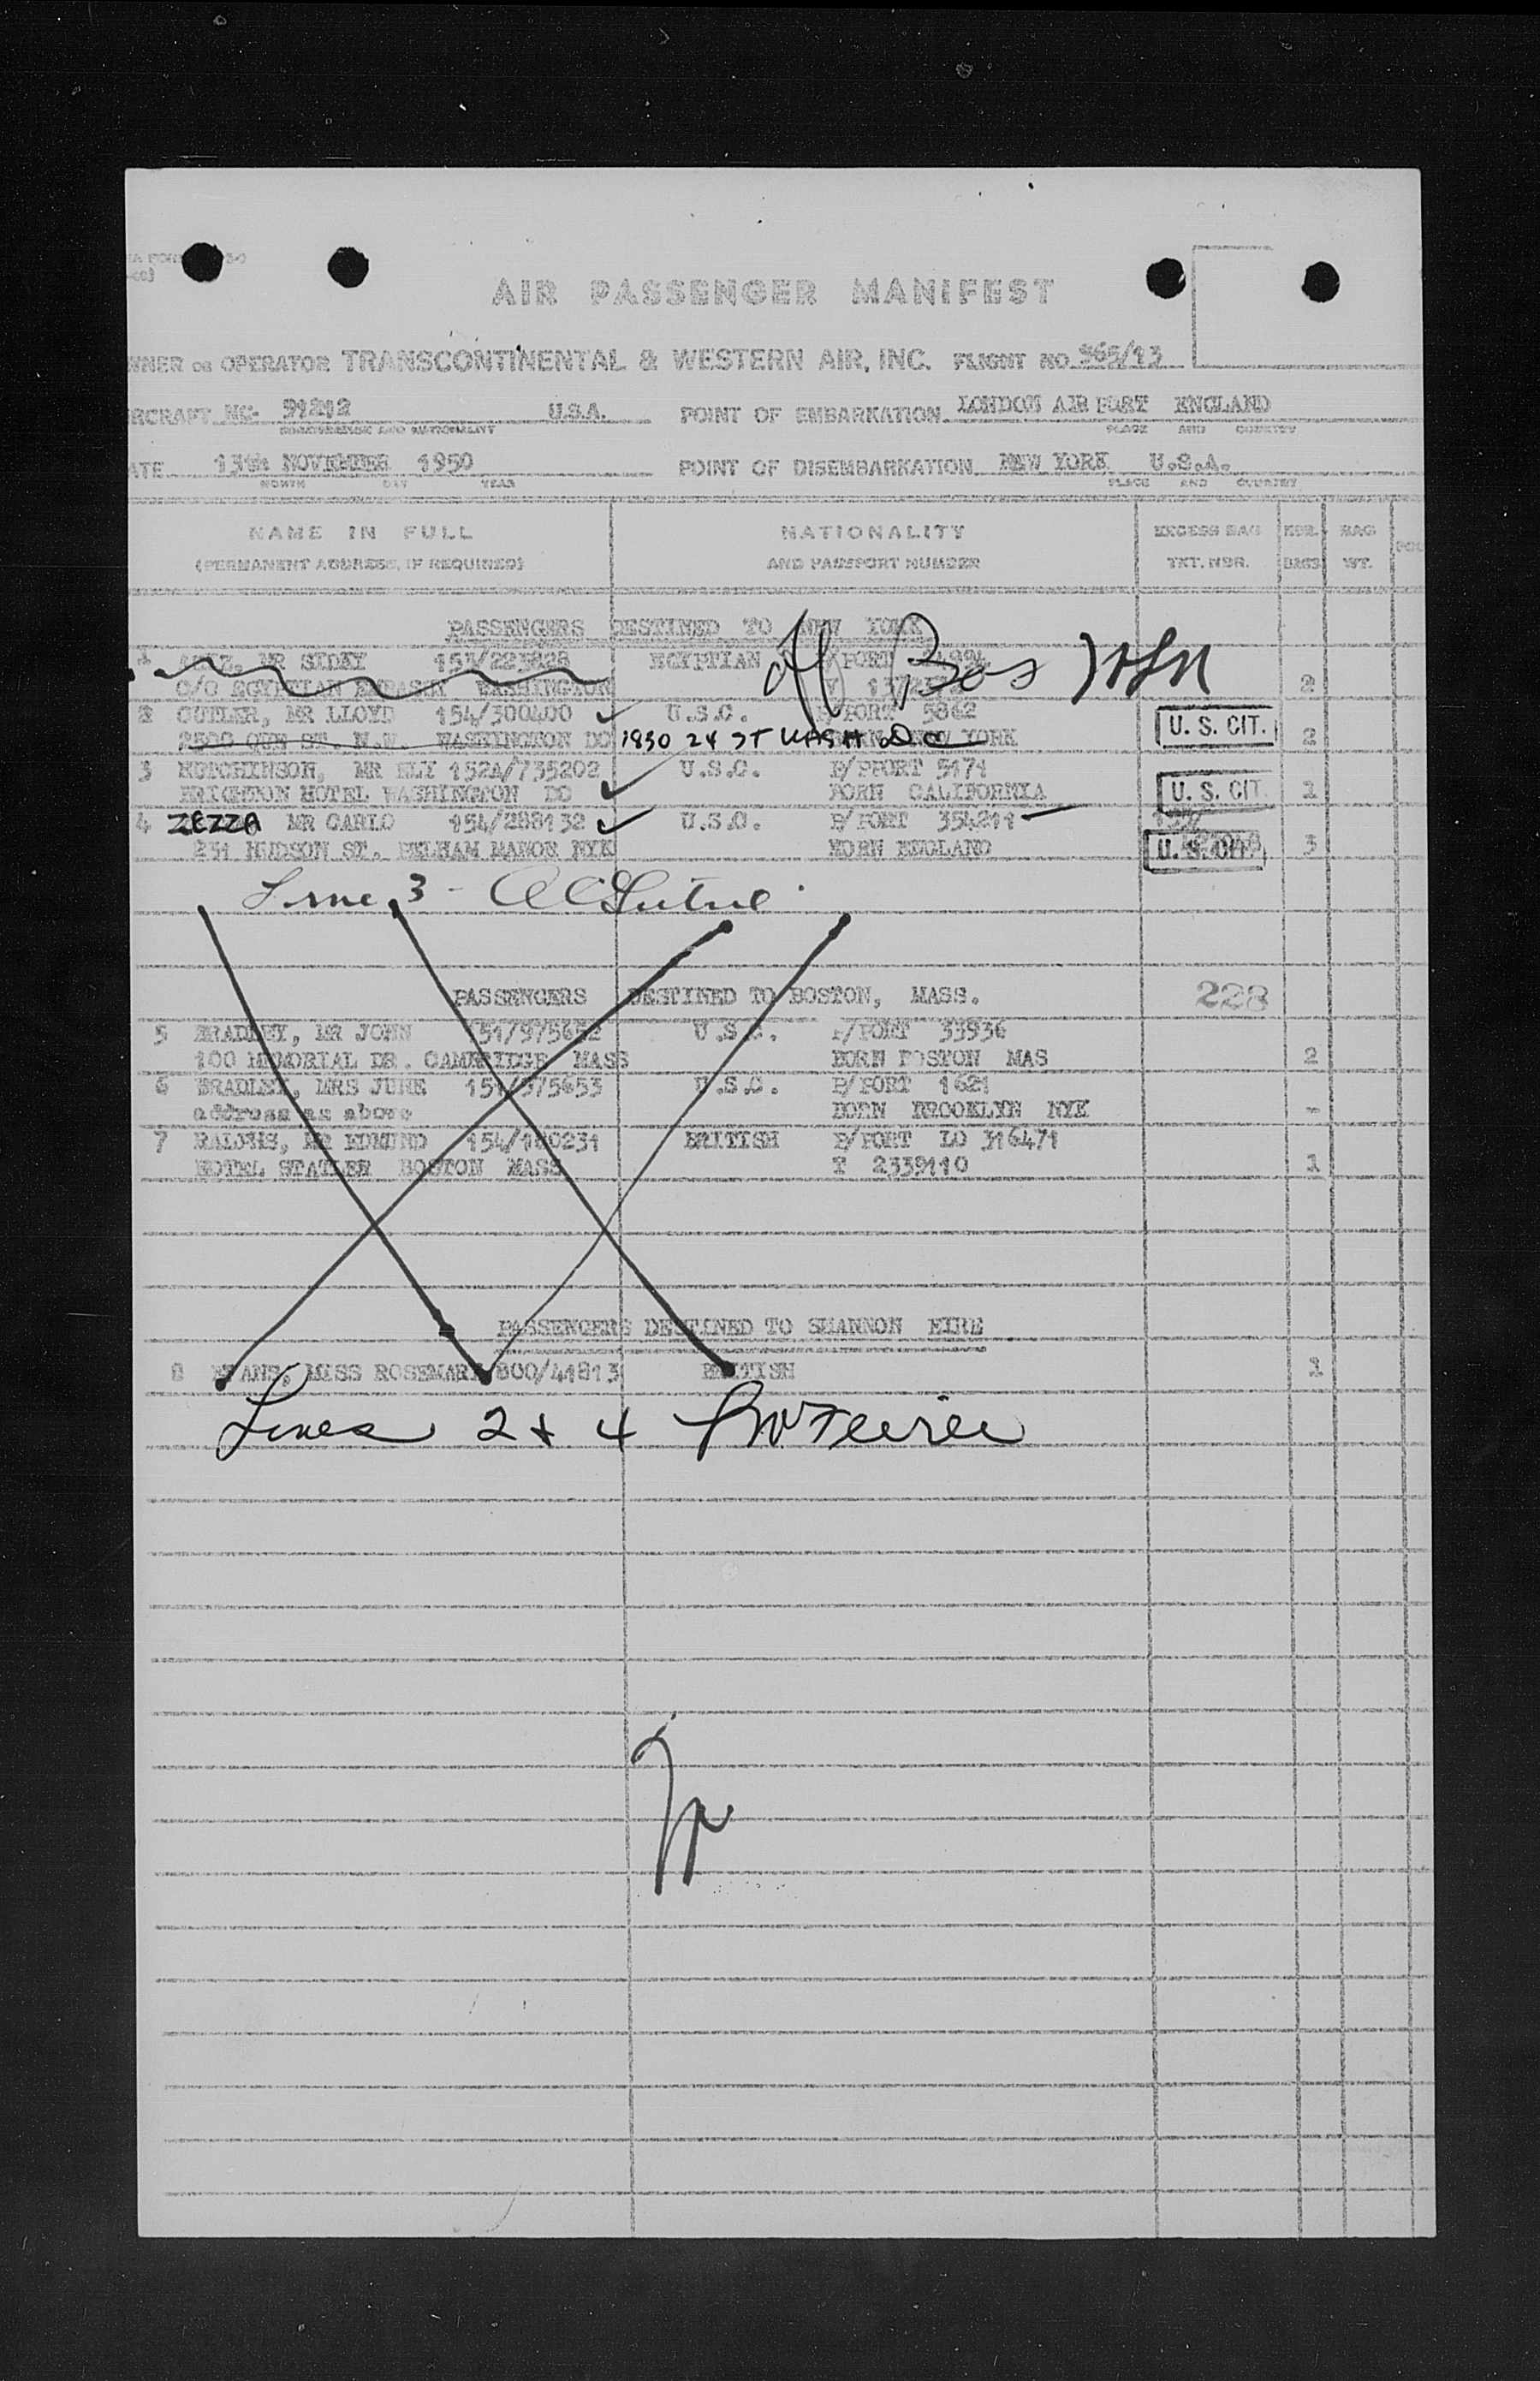 AIR PASSENGER MANIFEST
OWNER OR OPERATOR TRANSCONTINENTAL & WESTERN AIR, INC. FLIGHT NO. 965/13
AIRCRAFT NO. 91212 U.S.A. POINT OF EMBARKATION LONDON AIR PORT ENGLAND
PLACE AND COUNTRY
DATE 13TH NOVEMBER 1950 POINT OF DISEMBARKATION NEW YORK U.S.A.
MONTH DAY YEAR PLACE AND COUNTRY
NAME IN FULL NATIONALITY EXCESS BAG NBR. BAG
(PERMANENT ADDRESS, IF REQUIRED) AND PASSPORT NUMBER TKT. NBR. BAGS WT.
PASSENGERS DESTINED TO NEW YORK
1 MR SIDKY 153/223828 EGYPTIAN
C/O EGYPTIAN EMBASSY WASHINGTON 2
2 CUTLER, MR LLOYD 154/300400 U.S.C. P/PORT 5862
WASHINGTON DC 1830 24 ST WASH DC YORK U. S. CIT. 2
3 HUTCHINSON, MR ELY 152A/735202 U.S.C. P/PPORT 5171
BRIGHTON HOTEL WASHINGTON DC BORN CALIFORNIA U. S. CIT. 1
4 ZEZZA MR CARLO 154/288132 U.S.C. P/PORT 354211
231 HUDSON ST. PELHAM MANOR NYK BORN ENGLAND U. S. CIT. 3
Line 3 -
PASSENGERS DESTINED TO BOSTON, MASS. 228
5 BRADLEY, MR JOHN 151/975652 U.S.C. P/PORT 33936
100 MEMORIAL DR. CAMBRIDGE MASS BORN BOSTON MAS 2
6 BRADLEY, MRS JUNE 151/975653 U.S.C. P/PORT 1621
address as above BORN BROOKLYN NYK -
7 MR EDMUND 154/180231 BRITISH P/PORT LO 316471
HOTEL STATLER BOSTON MASS T 2339110 1
PASSENGERS DESTINED TO SHANNON EIRE
8 EVANS, MISS ROSEMARY 800/41813 BRITISH 1
Lines 2 + 4